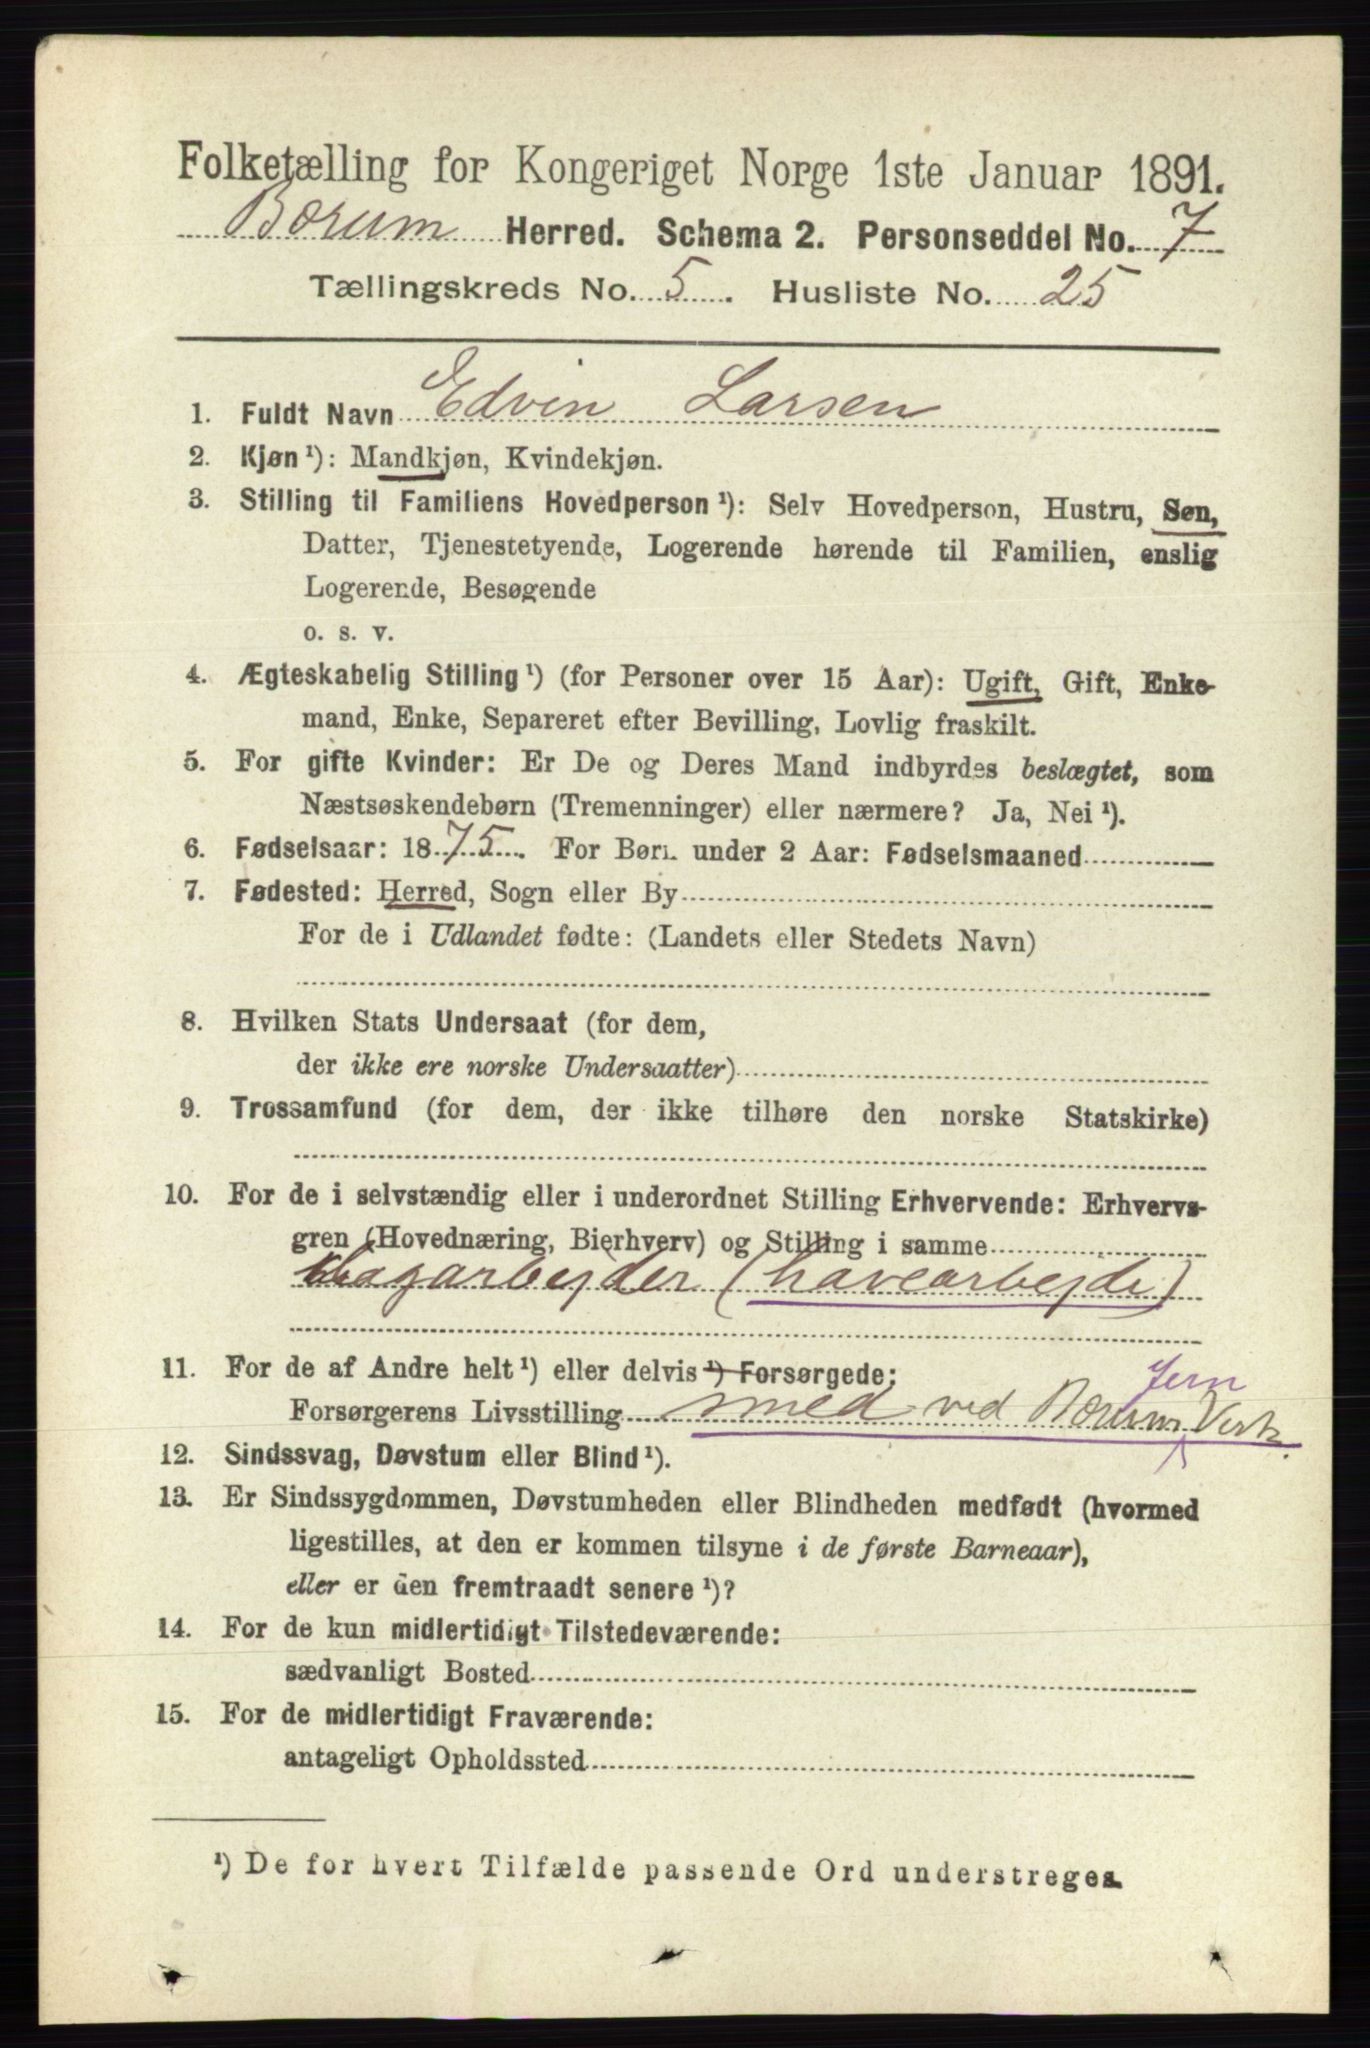 Folketælling for Kongeriget Norge 1ste Januar 1891.
Bærum Herred. Schema 2. Personseddel No. 7
Tællingskreds No. 5. Husliste No. 25
1. Fuldt Navn Edvin Larsen
2. Kjøn ¹): Mandkjøn, Kvindekjøn.
3. Stilling til Familiens Hovedperson ¹): Selv Hovedperson, Hustru, Søn,
Datter, Tjenestetyende, Logerende hørende til Familien, enslig
Logerende, Besøgende
o. s. v.
4. Ægteskabelig Stilling ¹) (for Personer over 15 Aar): Ugift, Gift, Enke-
mand, Enke, Separeret efter Bevilling, Lovlig fraskilt.
5. For gifte Kvinder: Er De og Deres Mand indbyrdes beslægtet, som
Næstsøskendebørn (Tremenninger) eller nærmere? Ja, Nei ¹).
6. Fødselsaar: 1875. For Børn under 2 Aar: Fødselsmaaned
7. Fødested: Herred, Sogn eller By
For de i Udlandet fødte: (Landets eller Stedets Navn)
8. Hvilken Stats Undersaat (for dem,
der ikke ere norske Undersaatter)
9. Trossamfund (for dem, der ikke tilhøre den norske Statskirke)
10. For de i selvstændig eller i underordnet Stilling Erhvervende: Erhvervs-
gren (Hovednæring, Bierhverv) og Stilling i samme
Dagarbejder (havearbejde)
11. For de af Andre helt ¹) eller delvis ¹) Forsørgede:
Jern
Forsørgerens Livsstilling smed ved Bærums Verk.
12. Sindssvag, Døvstum eller Blind ¹).
13. Er Sindssygdommen, Døvstumheden eller Blindheden medfødt (hvormed
ligestilles, at den er kommen tilsyne i de første Barneaar),
eller er den fremtraadt senere ¹)?
14. For de kun midlertidigt Tilstedeværende:
sædvanligt Bosted
15. For de midlertidigt Fraværende:
antageligt Opholdssted
¹) De for hvert Tilfælde passende Ord understreges.